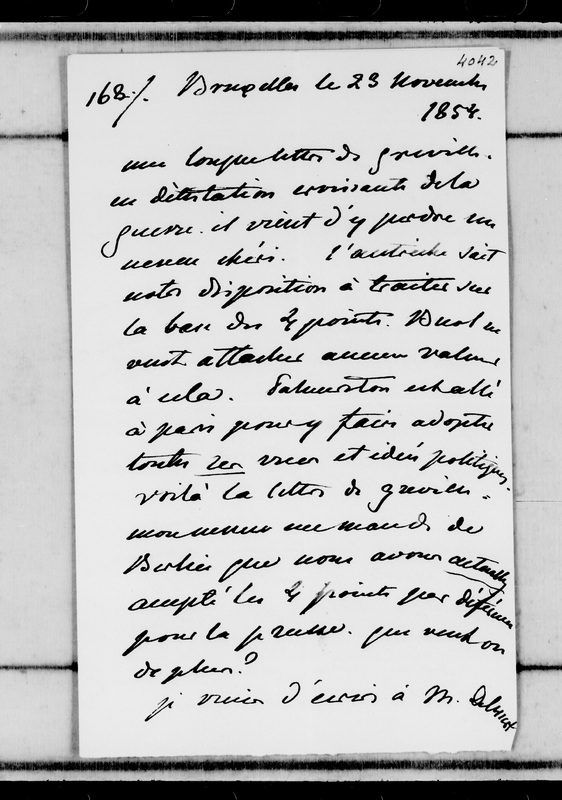 4042
168./. Bruxelles le 23 Novembre
1854.
une longue lettre de Greville.
en détestation croissante de la
guerre. il vient d'y perdre un
neveu chéri. l'autriche sait
notre disposition à traiter sur
la base des 4 points. Buol ne
veut attacher aucune valeur
à cela. Palmerston est allé
à paris pour y faire adopter
toutes ses vues et idées politiques.
voilà la lettre de greville.
mon neveu me mande de
Berlin que nous avons
accepté les 4 points par déférence
pour la prusse. que veut on
de plus?
je viens d'écrire à M.